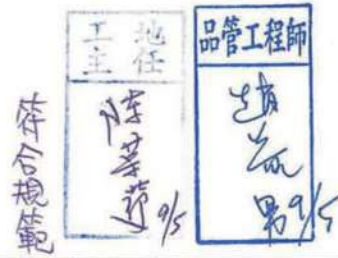 符合規範
工地
主任
陳
9/5
品管工程師
趙
男 9/5